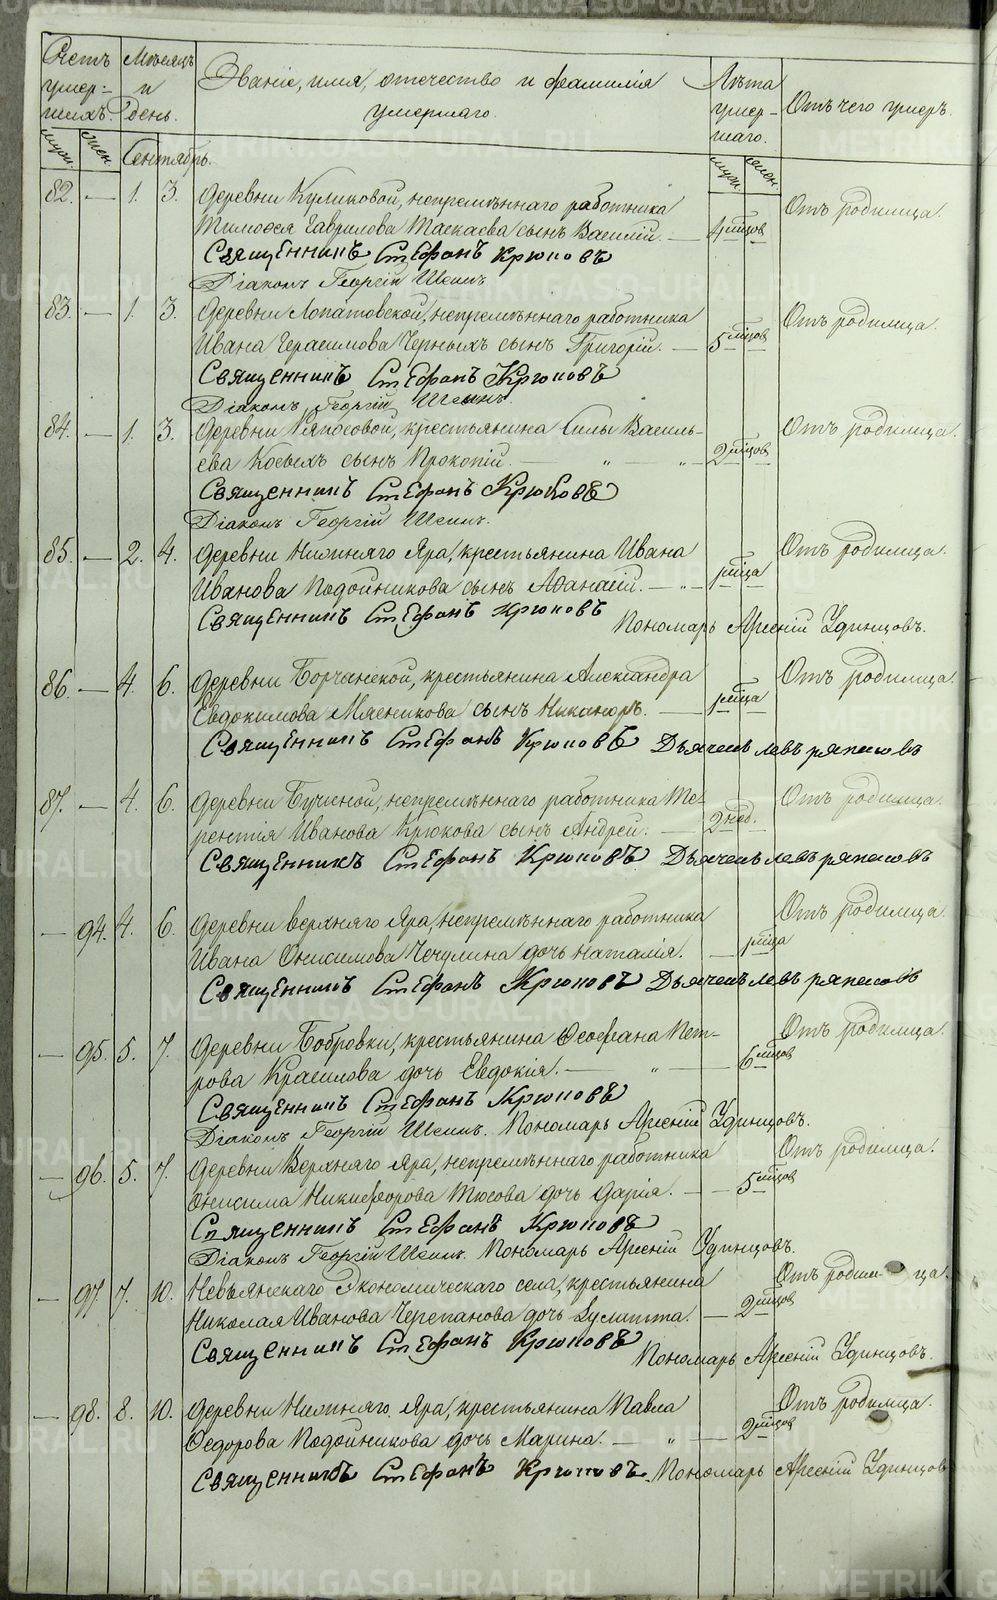 Счетъ умершихъ.
Мѣсяцъ и день.
Званіе, имя, отчество и фамилія умершаго.
Лѣта умершаго.
Отъ чего умеръ.
муж. жен. Сентябрь. муж. жен.
82. — 1. 3. Деревни Куликовой, непремѣннаго работника Отъ родимца.
Тимоѳея Гаврилова Таскаева сынъ Василій. — 4 мѣцов
Священникъ Стефанъ Крюковъ
Діаконъ Георгій Шешинъ
83. — 1. 3. Деревни Лопатовской, непремѣннаго работника Отъ родимца.
Ивана Герасимова Черныхъ сынъ Григорій. — 5 мѣцов
Священникъ Стефанъ Крюковъ
Діаконъ Георгій
84. — 1. 3. Деревни Ряпосовой, крестьянина Силы Василь- Отъ родимца.
ева Косыхъ сынъ Прокопій. — „ — „ 2 мѣцов
Священникъ Стефанъ Крюковъ
Діаконъ Георгій
85. — 2. 4. Деревни Нижняго Яра, крестьянина Ивана Отъ родимца.
Иванова Подойникова сынъ Аѳанасій. — „ 1 мѣца
Священникъ Стефанъ Крюковъ Пономарь Арсеній Удинцовъ.
86. — 4. 6. Деревни Борчанской, крестьянина Александра Отъ родимца.
Евдокимова Мясникова сынъ Никаноръ. — 1 мѣца
Священникъ Стефанъ Крюковъ Дьячекъ левъ ряпасовъ
87. — 4. 6. Деревни Бучиной, непремѣннаго работника Те- Отъ родимца.
рентія Иванова Крюкова сынъ Андрей. — 2 нед.
Священникъ Стефанъ Крюковъ Дьячекъ левъ ряпасовъ
— 94. 4. 6. Деревни верхняго Яра, непремѣннаго работника Отъ родимца.
Ивана Онисимова Чечулина дочь Наталія. — 1 мѣца
Священникъ Стефанъ Крюковъ Дьячекъ левъ ряпасовъ
— 95. 5. 7. Деревни Бобровки, крестьянина Ѳеофана Пет- Отъ родимца.
рова Красилова дочь Евдокія. — „ — 6 мѣцов
Священникъ Стефанъ Крюковъ
Діаконъ Георгій Пономарь Арсеній Удинцовъ.
— 96. 5. 7. Деревни Верхняго Яра, непремѣннаго работника Отъ родимца.
Онисима Никифорова Тюсова дочь Дарія. — 5 мѣцов
Священникъ Стефанъ Крюковъ
Діаконъ Георгій Пономарь Арсеній Удинцовъ.
— 97 7. 10. Невьянскаго Экономическаго села, крестьянина Отъ родимца.
Николая Иванова Черепанова дочь Іулитта. — 2 мѣцов
Священникъ Стефанъ Крюковъ Пономарь Арсеній Удинцовъ.
— 98. 8. 10. Деревни Нижняго Яра, крестьянина Павла Отъ родимца.
Ѳедорова Подойникова дочь Марина. — „ — 2 мѣцов
Священникъ Стефанъ Крюковъ. Пономарь Арсеній Удинцовъ
METRIKI.GASO-URAL.RU